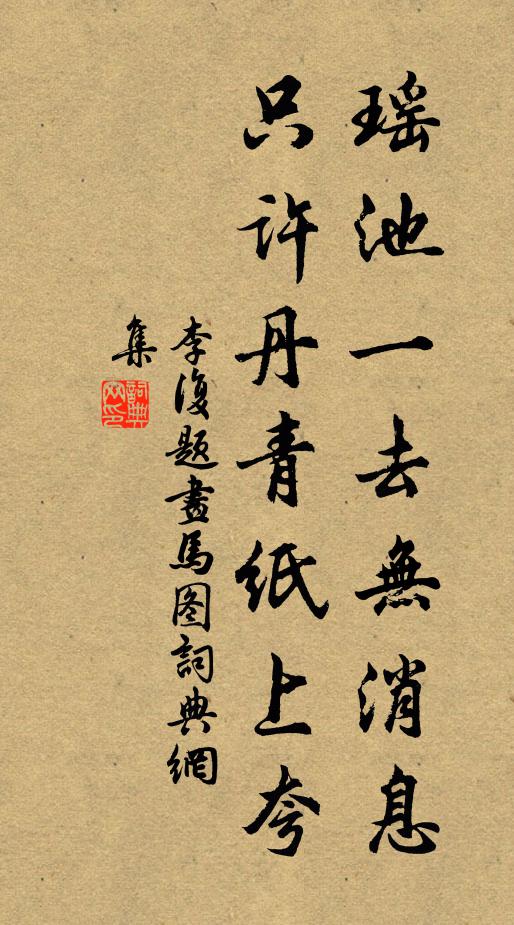 瑶池一去無消息
只許丹青紙上夸
李復題畫馬图詞典網
集
詞典網印